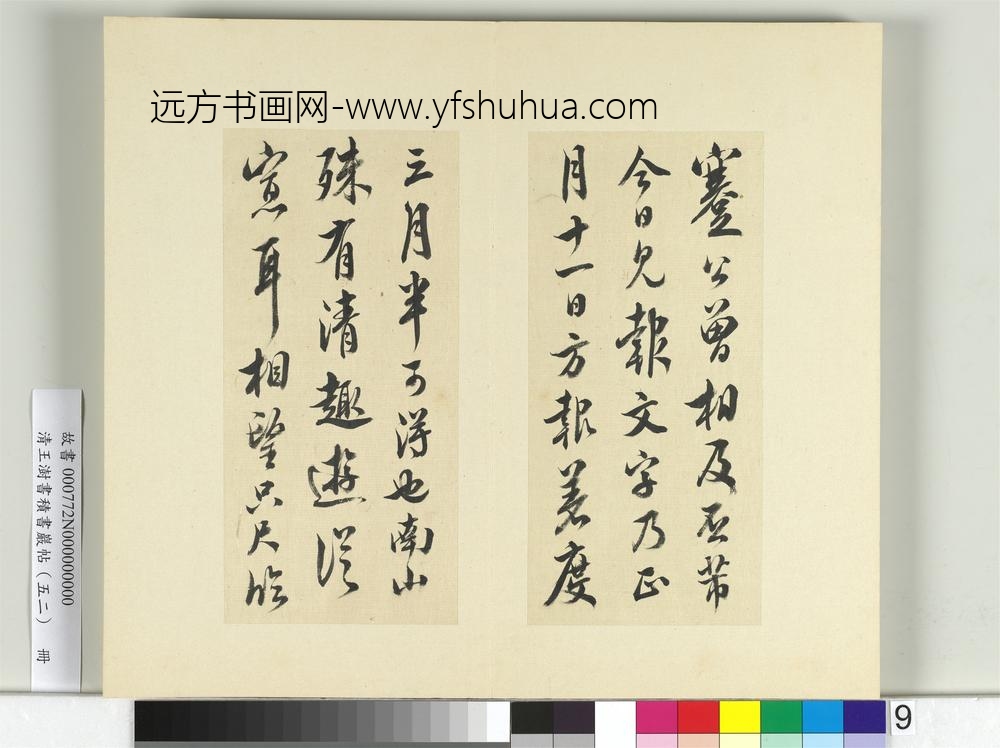 远方书画网-www.yfshuhua.com
蹇公曾相及否芾
今日見報文字乃正
月十一日方報差度
三月半可得也南山
殊有清趣遊從
宽耳相望只尺臨
故書 000772N000000000
清王澍書積書巖帖(五二) 冊
9